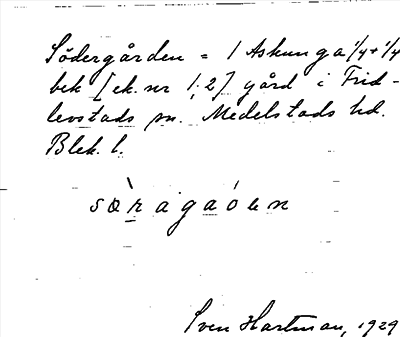 Södergården = 1 Askunga 1/4 + 1/4
bek [ek. nr 1:2] gård i Frid-
levstads sn. Medelstads hd.
Blek. l.
Sven Hartman, 1929